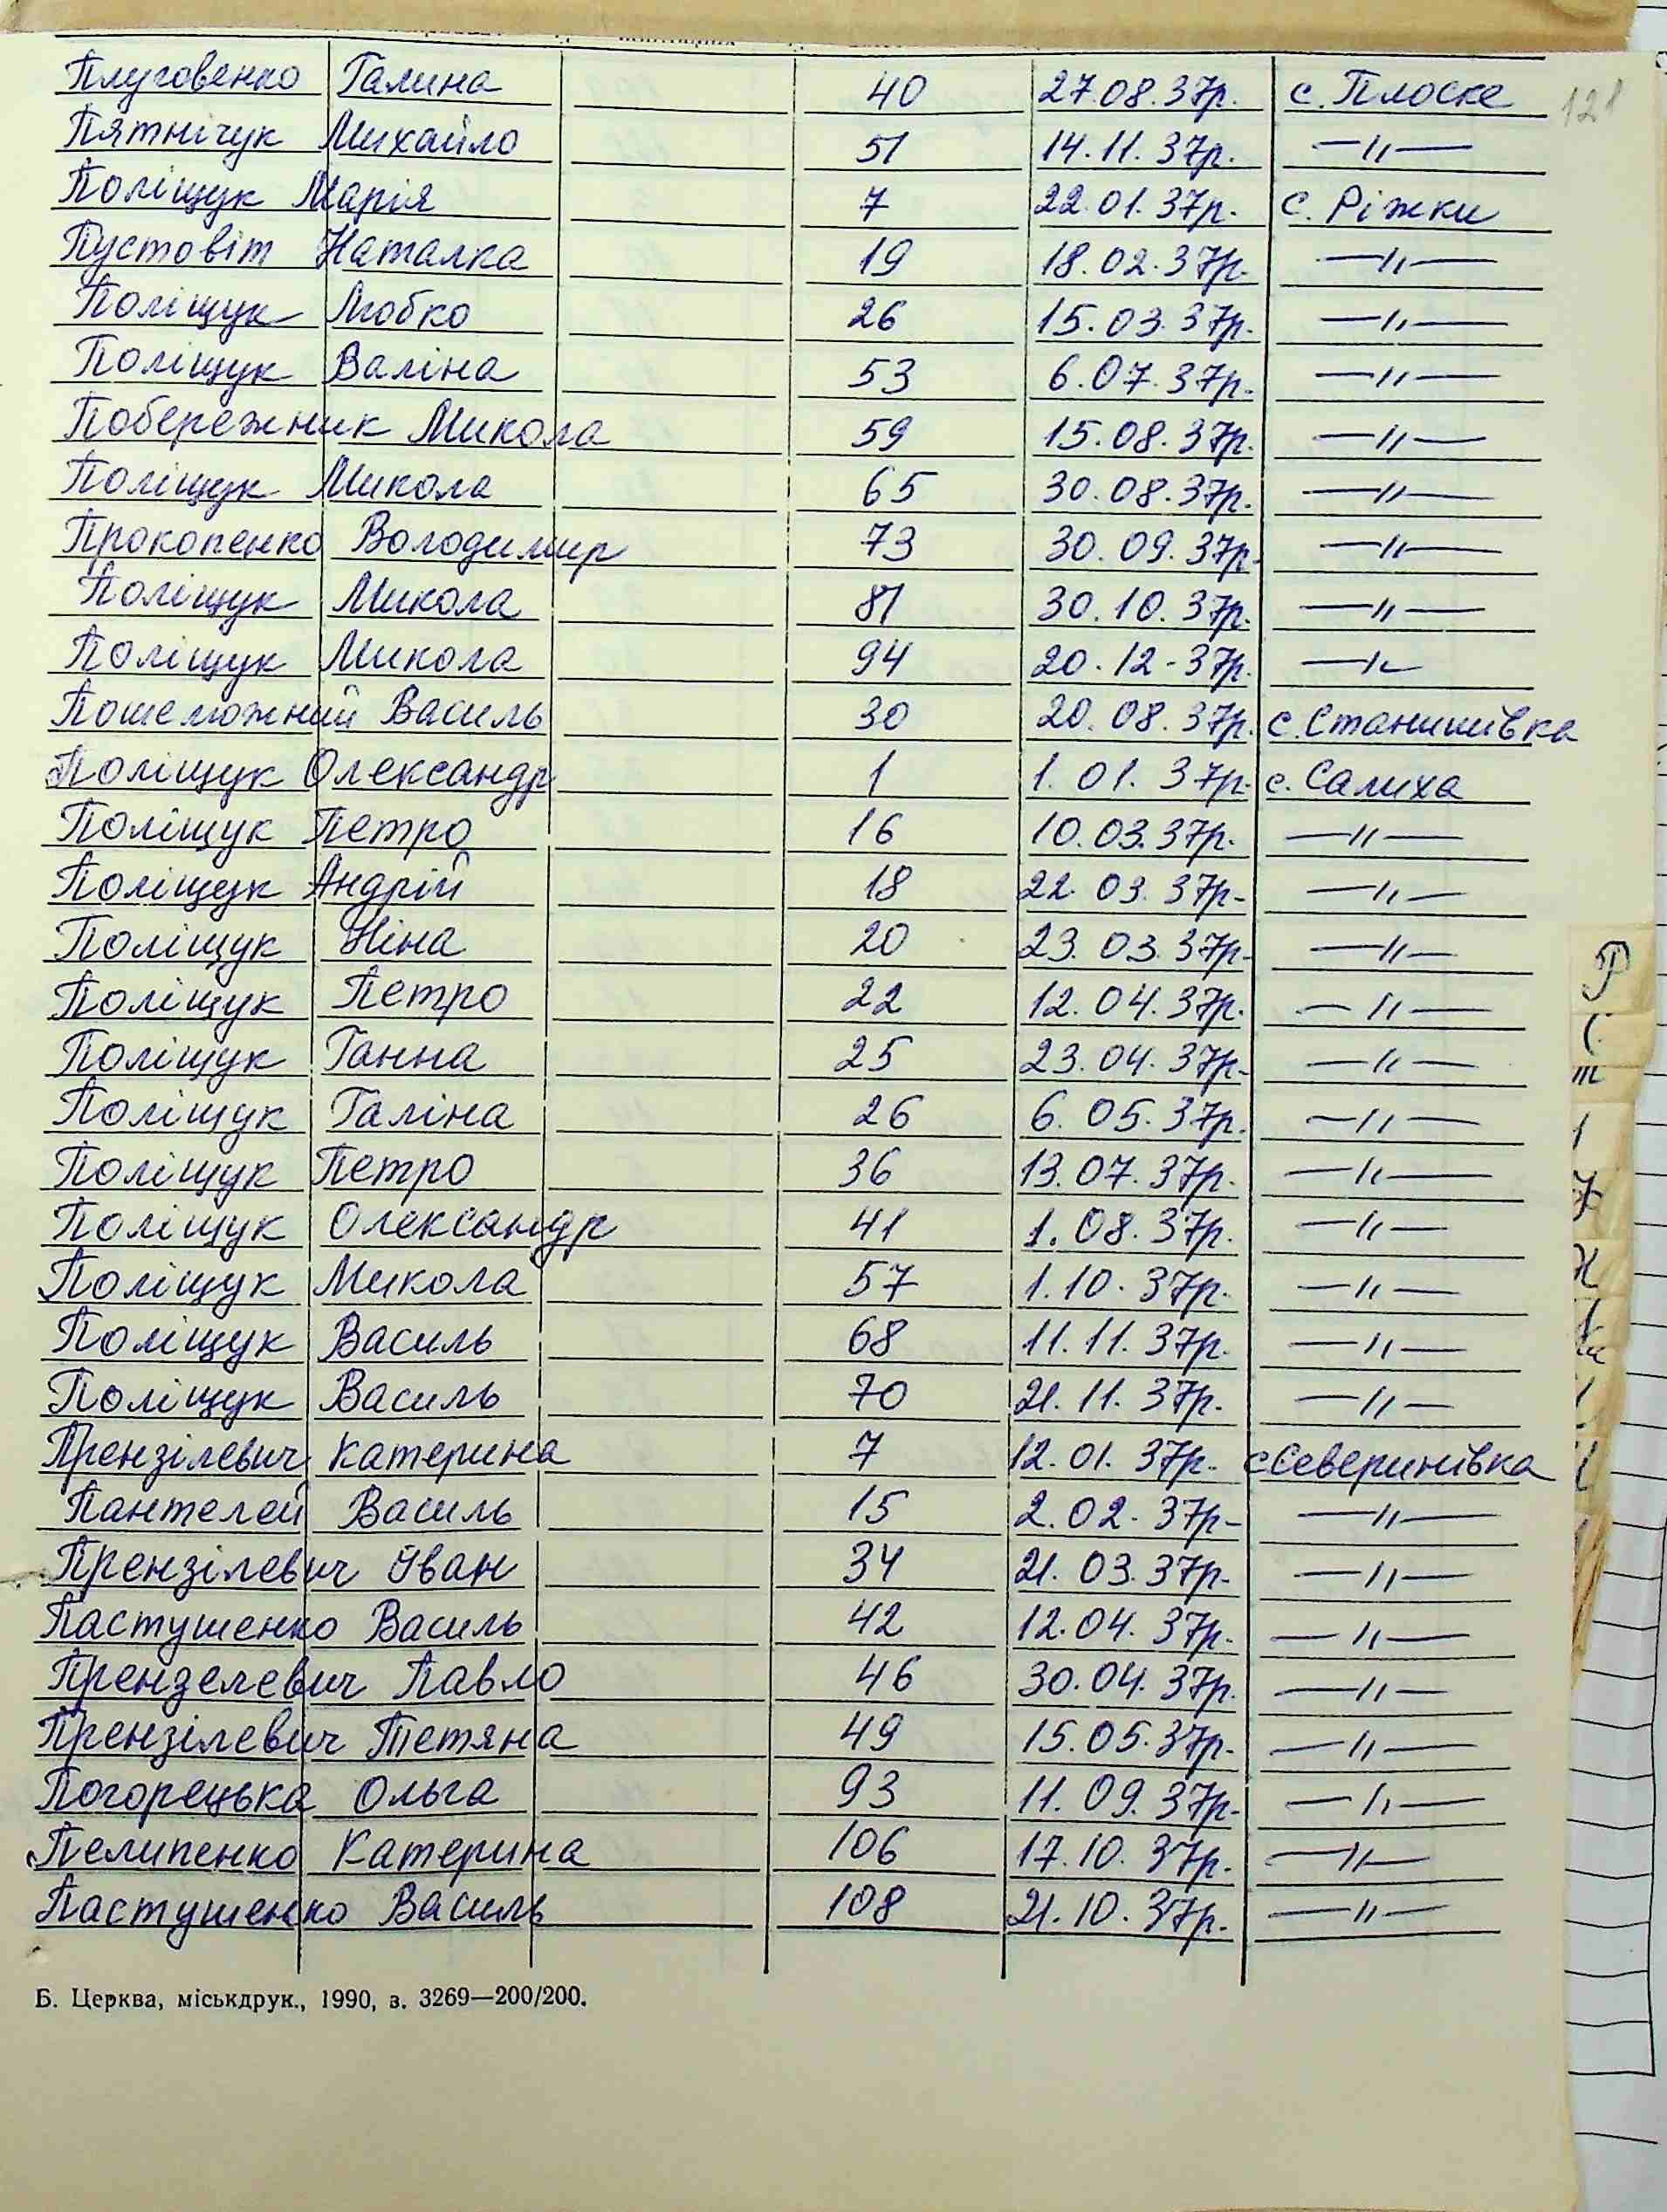 Плуговенко Галина 40 27.08.37р. с. Плоске 121
Пятнічук Михайло 51 14.11.37р. —"—
Поліщук Марія 7 22.01.37р. с. Ріжки
Пустовіт Наталка 19 18.02.37р. —"—
Поліщук Любко 26 15.03.37р. —"—
Поліщук Валіна 53 6.07.37р. —"—
Побережник Микола 59 15.08.37р. —"—
Поліщук Микола 65 30.08.37р. —"—
Прокопенко Володимир 73 30.09.37р. —"—
Поліщук Микола 81 30.10.37р. —"—
Поліщук Микола 94 20.12-37р. —"—
Пошелюжний Василь 30 20.08.37р. с. Станишівка
Поліщук Олександр 1 1.01.37р. с. Салиха
Поліщук Петро 16 10.03.37р. —"—
Поліщук Андрій 18 22.03.37р. —"—
Поліщук Ніна 20 23.03.37р. —"—
Поліщук Петро 22 12.04.37р. —"—
Поліщук Ганна 25 23.04.37р. —"—
Поліщук Галіна 26 6.05.37р. —"—
Поліщук Петро 36 13.07.37р. —"—
Поліщук Олександр 41 1.08.37р. —"—
Поліщук Микола 57 1.10.37р. —"—
Поліщук Василь 68 11.11.37р. —"—
Поліщук Василь 70 21.11.37р. —"—
Прензілевич Катерина 7 12.01.37р. с Северинівка
Пантелей Василь 15 2.02.37р. —"—
Прензілевич Іван 34 21.03.37р. —"—
Пастушенко Василь 42 12.04.37р. —"—
Прензелевич Павло 46 30.04.37р. —"—
Прензілевич Тетяна 49 15.05.37р. —"—
Погорецька Ольга 93 11.09.37р. —"—
Пелипенко Катерина 106 17.10.37р. —"—
Пастушенко Василь 108 21.10.37р. —"—
Б. Церква, міськдрук., 1990, з. 3269—200/200.